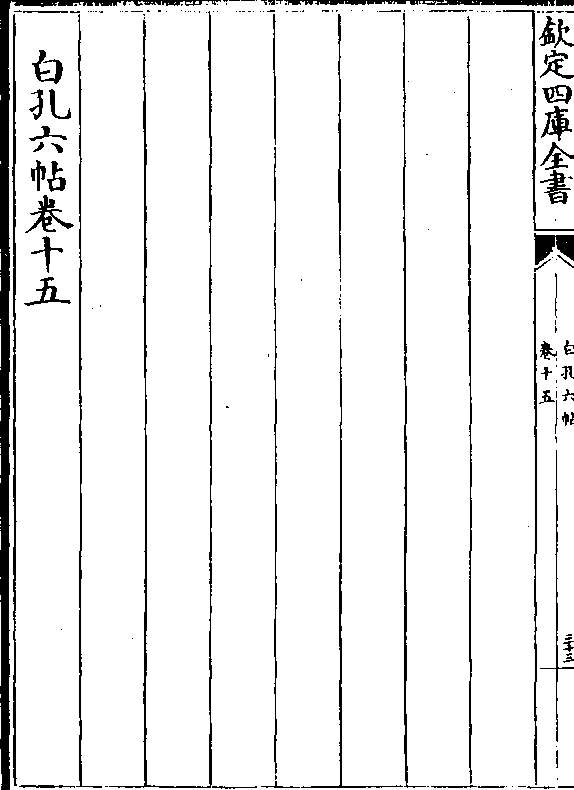 欽定四庫全書
白孔六帖
卷十五
三十三
白孔六帖卷十五